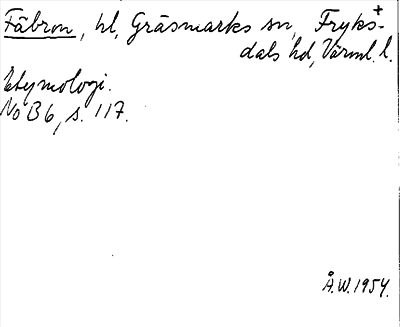 Fäbron, hl, Gräsmarks sn, Fryks-
dals hd, Värml. l.
Etymologi.
NoB 6, s. 117.
Å.W. 1954.